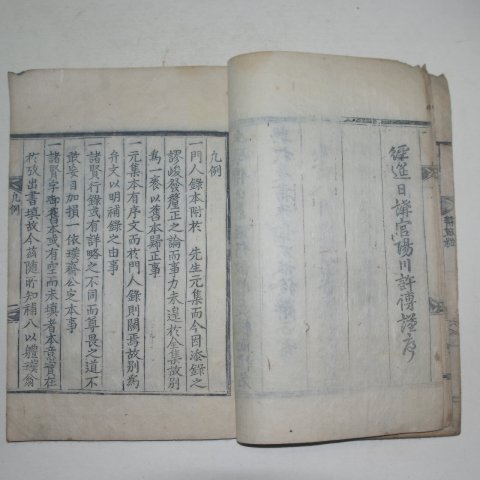 經筵日講官陽川許傳謹序
凡例
一門人錄本附於　先生元集而今因添錄之
謬峻發釐正之論而事力未遑於全集故別
為一卷以舊本歸正事
一元集本有序文而於門人錄則闕焉故別為
弁文以明補錄之由事
一諸賢行錄或有詳略之不同而尊畏之道不
敢埃目加損一依璞齋公定本事
一諸賢字銜舊本或有空而未填者本意實在
於敀出書填故今茲隨所知補入以體璞翁
凡例